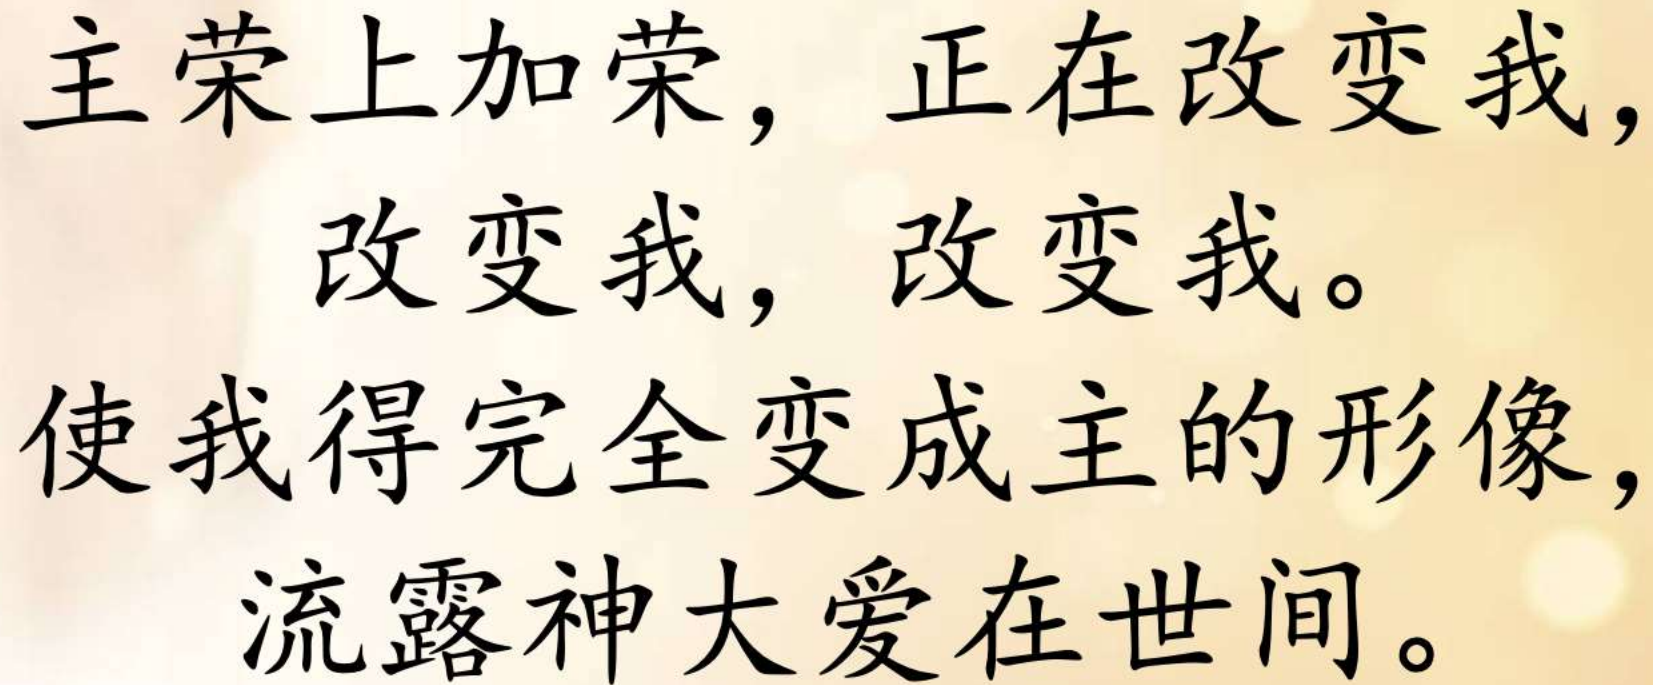 主荣上加荣，正在改变我，
改变我，改变我。
使我得完全变成主的形像，
流露神大爱在世间。